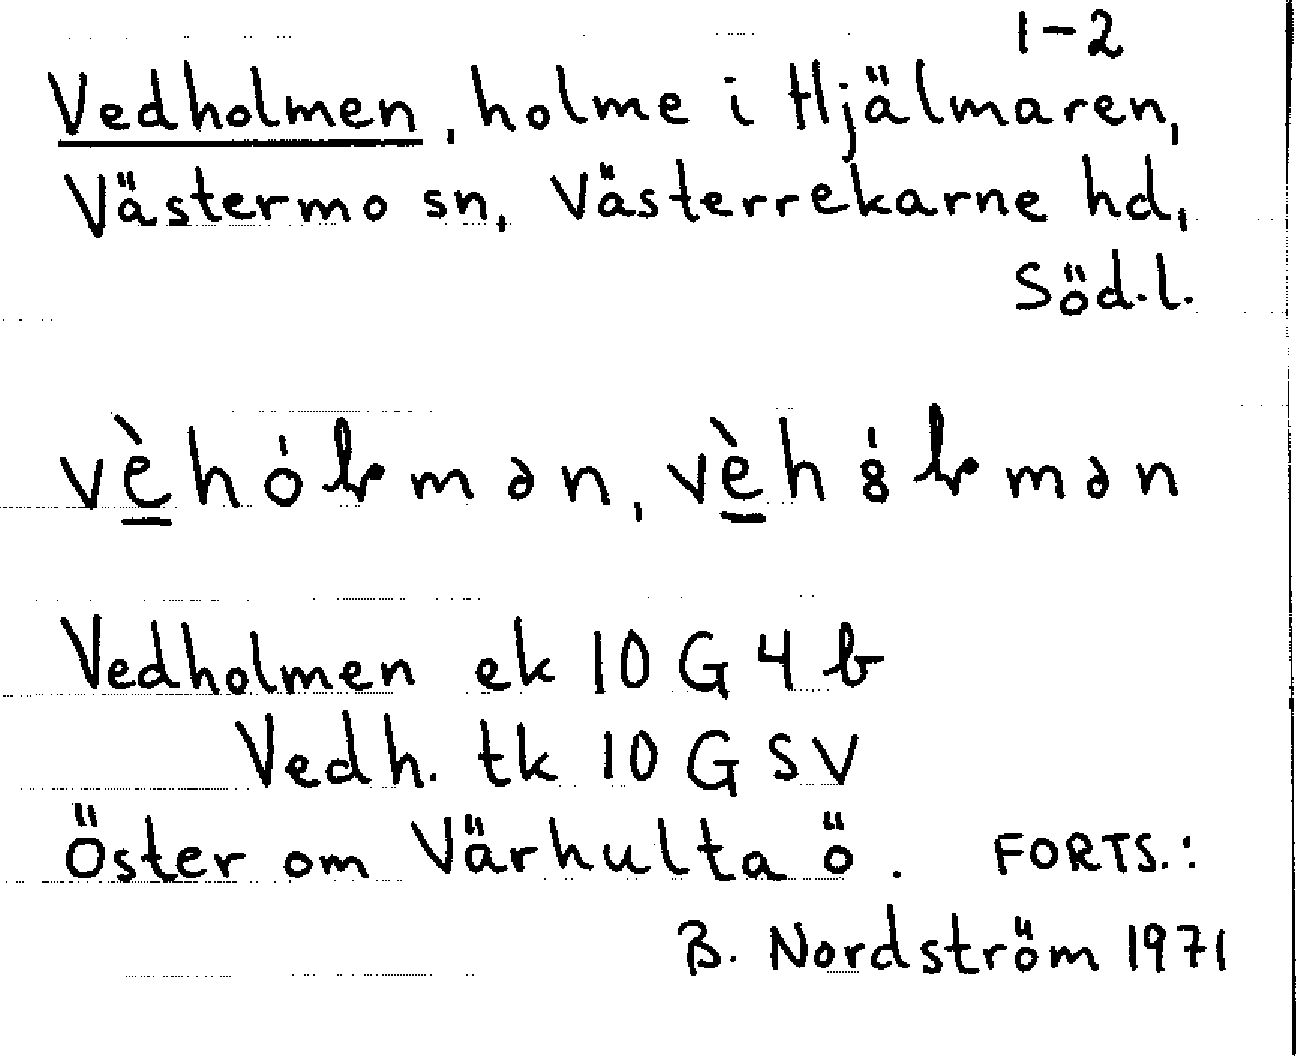 1-2
Vedholmen, holme i Hjälmaren,
Västermo sn, Västerrekarne hd,
Söd.l.
Vedholmen ek 10 G 4 b
Vedh. tk 10 G SV
Öster om Värhulta ö. FORTS.:
B. Nordström 1971